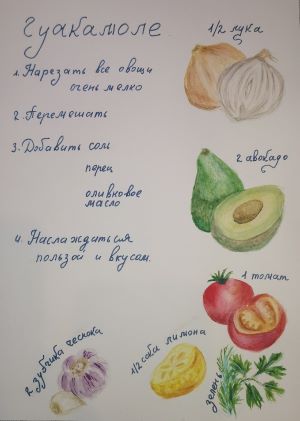 Гуакамоле
1. Нарезать все овощи
очень мелко
2. Перемешать
3. Добавить соль
перец
оливковое
масло
4. Наслаждаться
пользой и вкусом.
1/2 лука
2 авокадо
1 томат
2 зубчика чеснока
1/2 сока лимона
зелень